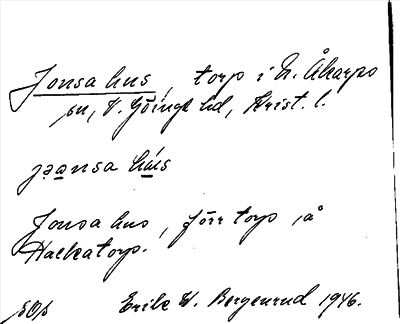 Jonsa hus, torp i N. Åkarps
sn, V. Göinge hd, Krist. l.
jə̱a̱nsa hu̱s
Jonsa hus, förr torp på
Hackatorp.
SOS
Erik W. Bergenrud 1946.